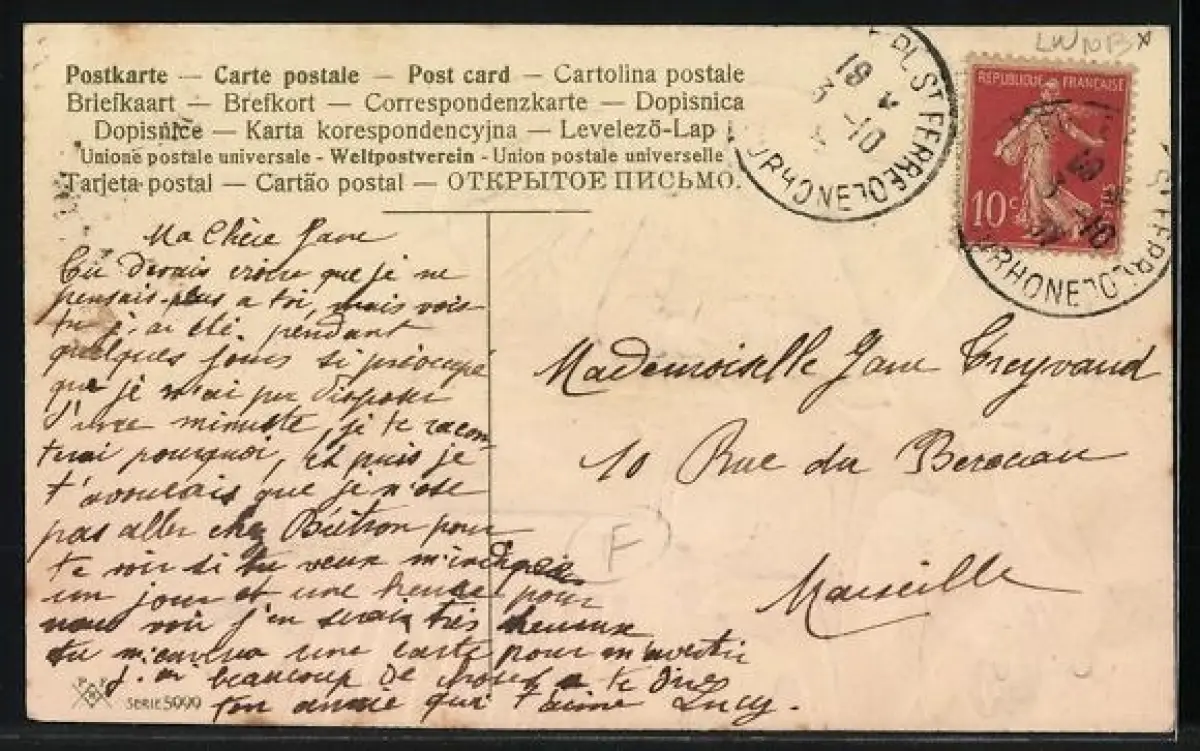 Postkarte — Carte postale — Post card — Cartolina postale
Briefkaart — Brefkort — Correspondenzkarte — Dopisnica
Dopisnice — Karta korespondencyjna — Levelező-Lap
Unione postale universale - Weltpostverein - Union postale universelle
Tarjeta postal — Cartão postal — ОТКРЫТОЕ ПИСЬМО.
PL. ST FERREOL
19
3 -10
BDURHONE
REPUBLIQUE FRANÇAISE
10 c
POSTES
ST FERREOL
BDURHONE
Ma Chère Jane
Tu devais croire que je ne
pensais plus a toi, mais vois
tu j'ai été pendant
quelques jours si préocupé
que je n'ai pu disposer
d'une minute, je te racon
terai pourquoi, et puis je
t'avouerais que je n'ose
pas aller chez Biétron pour
te voir si tu veux m'indiquer
un jour et une heure pour
nous voir j'en serais très heureux
tu m'enverra une carte pour m'avertir
j'ai beaucoup de choses a te dire
ton amie qui t'aime Lucy.
Mademoiselle Jane Greyvaud
10 Rue du Berceau
Marseille
F
SERIE 5090